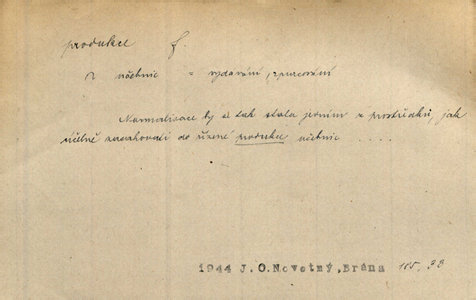 produkce f.
~ učebnic = vydávání, zpracování
Normalisace by se tak stala jedním z prostředků, jak
účelně zasahovati do řízené produkce učebnic . . . .
1944 J.O.Novotný,Brána 115, 33